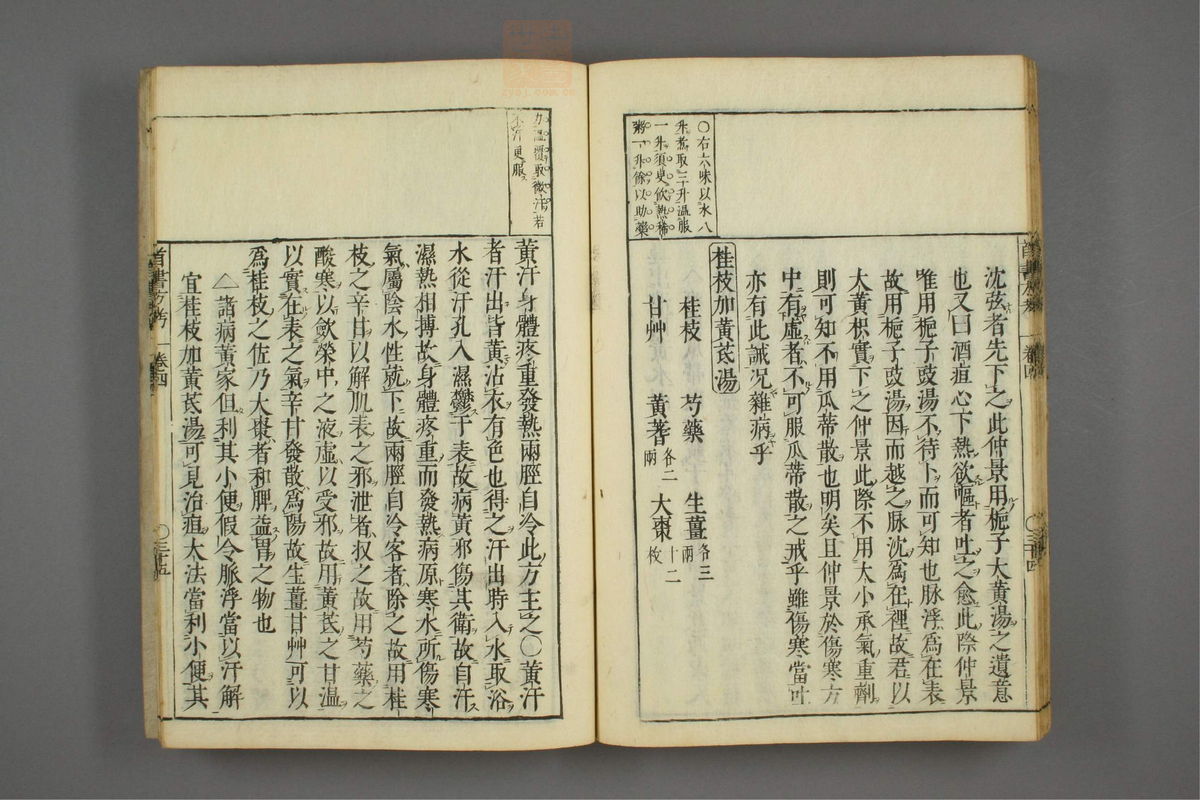 ○右六味以水八
升煮取三升温服
一升須臾飲熱稀
粥一升餘以助藥
沈弦者先下之此仲景用梔子大黃湯之遺意
也又曰酒疸心下熱欲嘔者吐之愈此際仲景
唯用梔子豉湯不待卜而可知也脉浮爲在表
故用梔子豉湯因而越之脉沈爲在裡故君以
大黃枳實下之仲景此際不用大小承氣重劑
則可知不用瓜蒂散也明矣且仲景於傷寒方
中有虛者不可服瓜蒂散之戒乎雖傷寒當吐
亦有此誡況雜病乎
桂枝加黃芪湯
桂枝 芍藥 生薑各三兩
甘艸 黃蓍各二兩 大棗十二枚
力温覆取微汗若
不汗更服
黃汗身體疼重發熱兩脛自冷此方主之○黃汗
者汗出皆黃沾衣有色也得之汗出時入水取浴
水從汗孔入濕鬱于表故病黃邪傷其衛故自汗
濕熱相搏故身體疼重而發熱病原寒水所傷寒
氣屬陰水性就下故兩脛自冷客者除之故用桂
枝之辛甘以解肌表之邪泄者收之故用芍藥之
酸寒以斂榮中之液虛以受邪故用黃芪之甘温
以實在表之氣辛甘發散爲陽故生薑甘艸可以
爲桂枝之佐乃大棗者和脾益胃之物也
△諸病黃家但利其小便假令脈浮當以汗解
宜桂枝加黃芪湯可見治疸大法當利小便其
卷四
○三十五